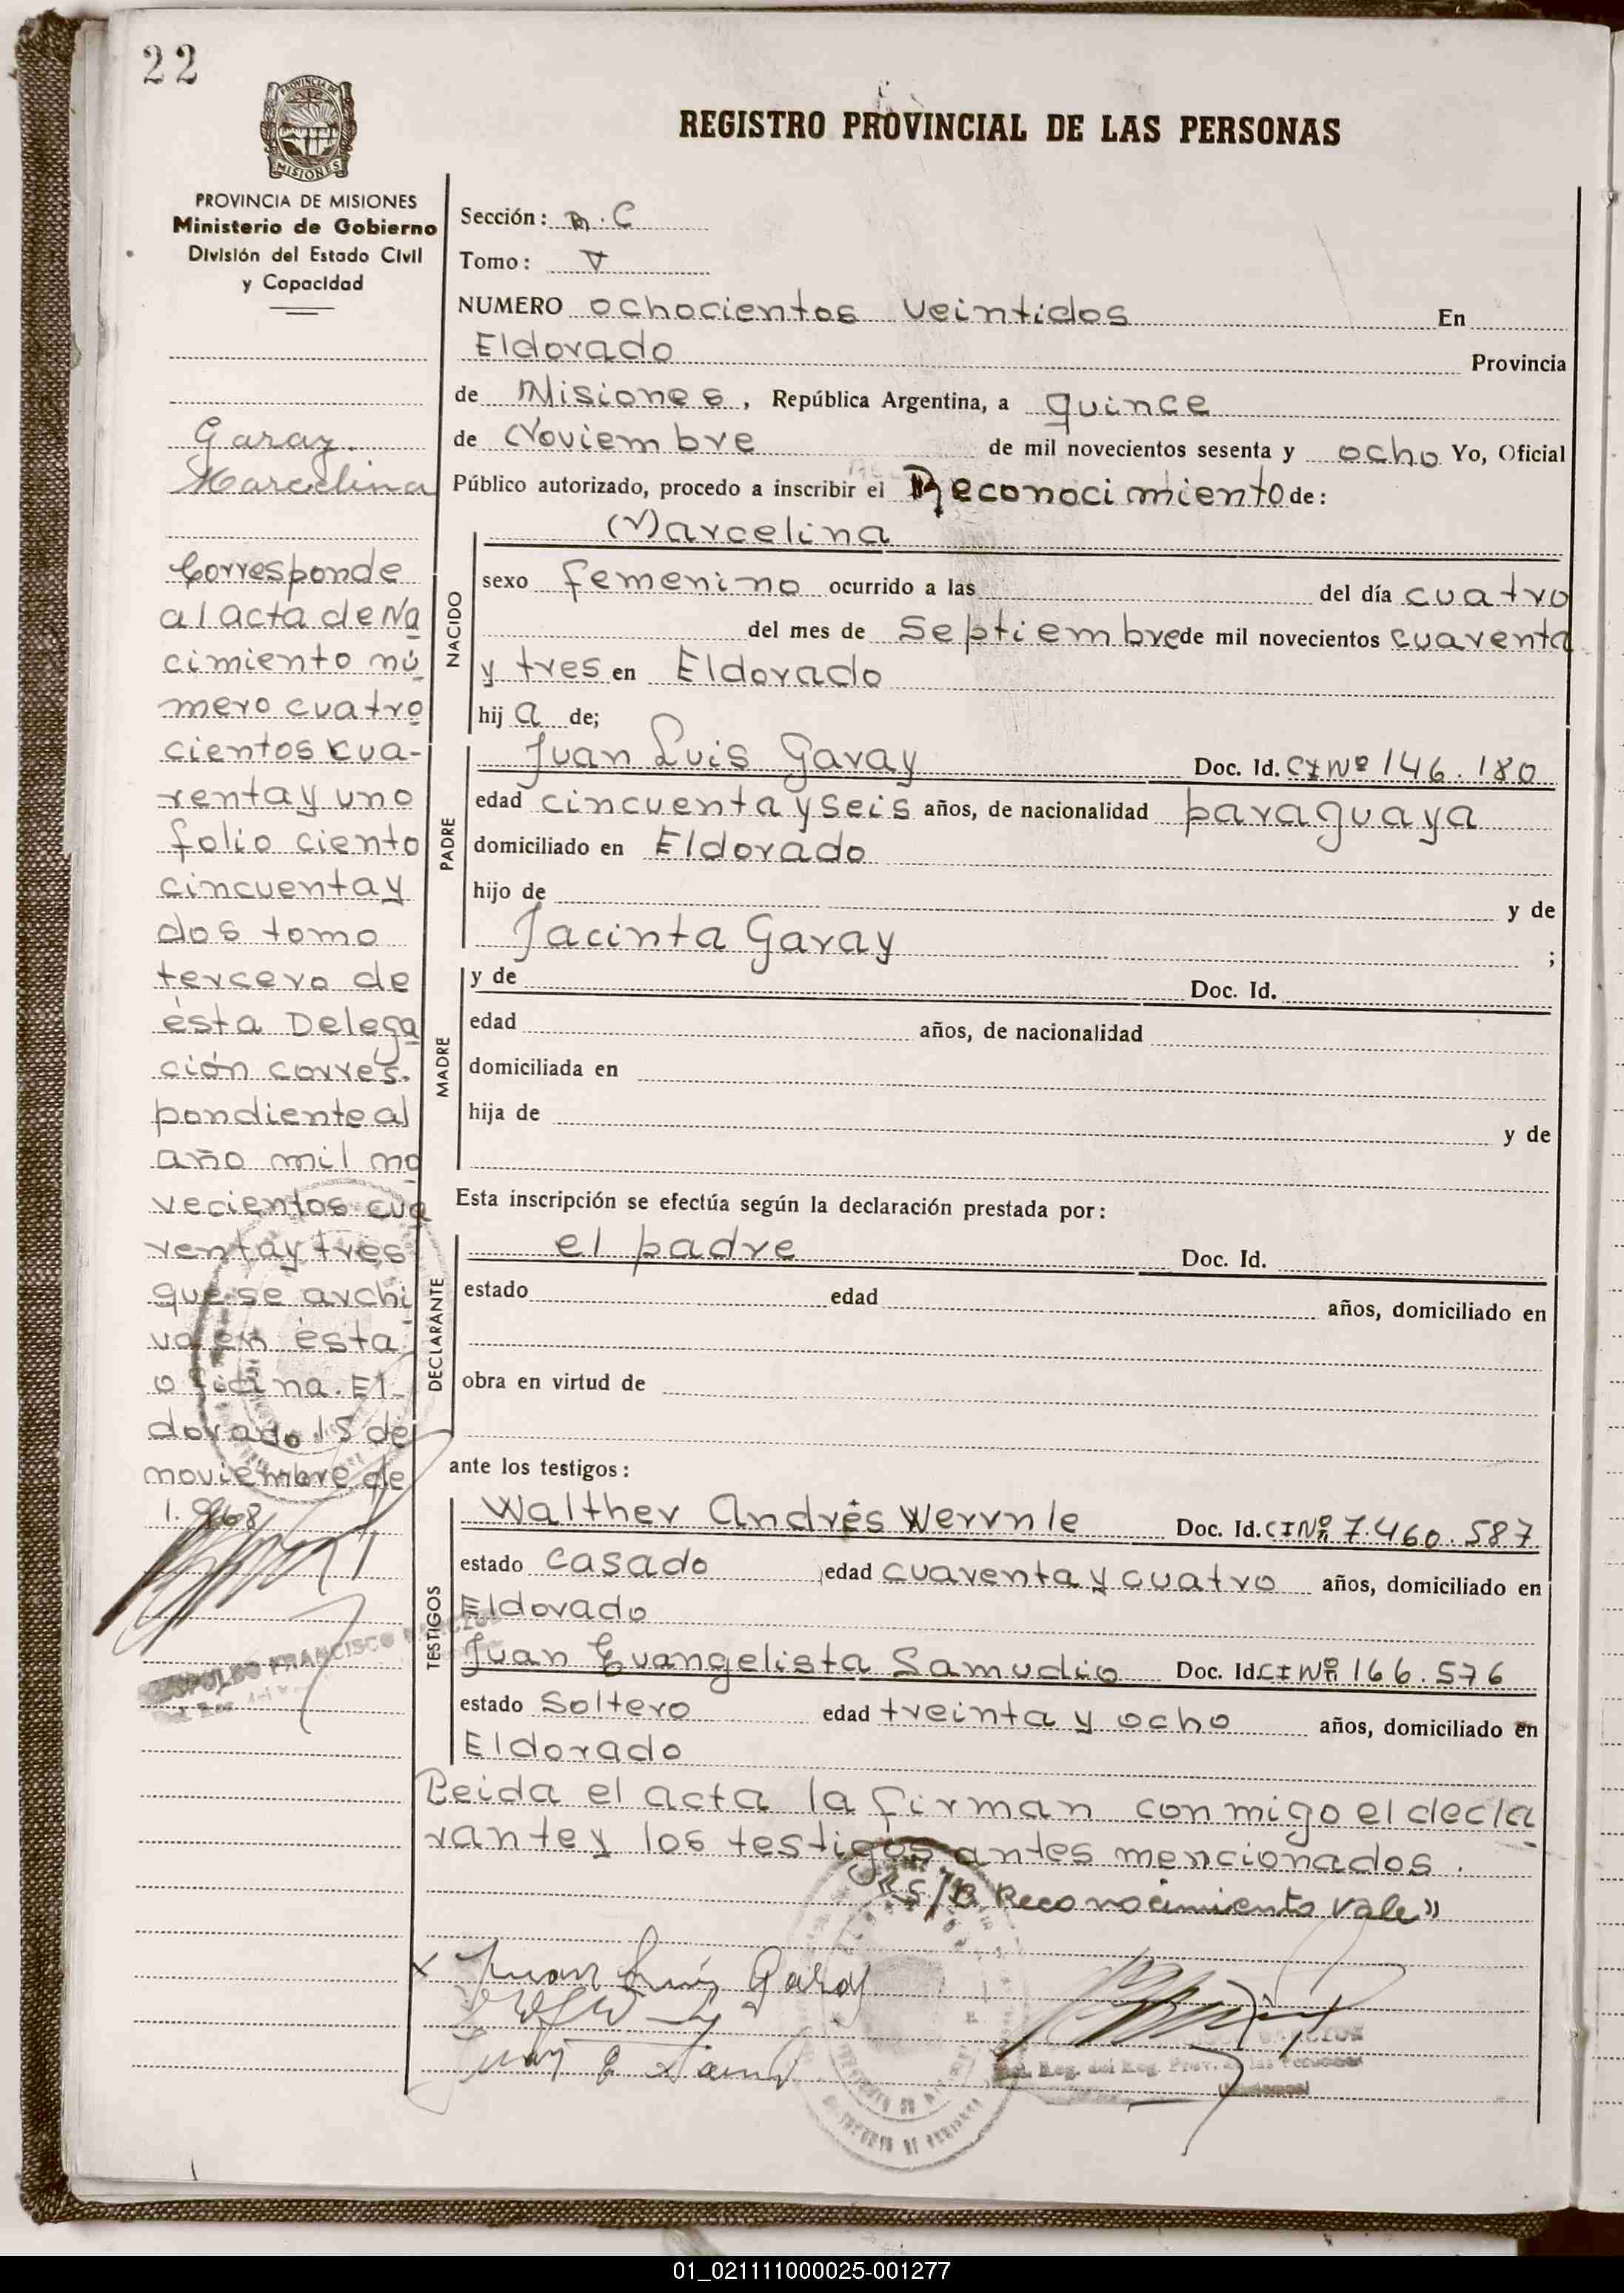 22
PROVINCIA DE
MISIONES
REGISTRO PROVINCIAL DE LAS PERSONAS
PROVINCIA DE MISIONES
Ministerio de Gobierno
División del Estado Civil
y Capacidad
Garay
Marcelina
Corresponde
al acta de Na
cimiento nú
mero cuatro
cientos cua-
renta y uno
folio ciento
cincuenta y
dos tomo
tercero de
ésta Delega
ción corres-
pondiente al
año mil no
vecientos cua
renta y tres
que se archi
va en ésta
oficina. El-
dorado 15 de
noviembre de
1.968
FRANCISCO
Sección: C
Tomo: V
NUMERO ochocientos veintidos En
Eldorado Provincia
de Misiones, República Argentina, a quince
de Noviembre de mil novecientos sesenta y ocho Yo, Oficial
Público autorizado, procedo a inscribir el Reconocimiento de:
NACIDO
Marcelina
sexo femenino ocurrido a las del día cuatro
del mes de Septiembre de mil novecientos cuarenta
y tres en Eldorado
hij a de;
PADRE
Juan Luis Garay Doc. Id. CI Nº 146.180
edad cincuenta y seis años, de nacionalidad paraguaya
domiciliado en Eldorado
hijo de y de
Jacinta Garay ;
MADRE
y de Doc. Id.
edad años, de nacionalidad
domiciliada en
hija de y de
Esta inscripción se efectúa según la declaración prestada por:
DECLARANTE
el padre Doc. Id.
estado edad años, domiciliado en
obra en virtud de
ante los testigos:
TESTIGOS
Walther Andrés Wervnle Doc. Id. CI Nº 7.460.587
estado casado edad cuarenta y cuatro años, domiciliado en
Eldorado
Juan Evangelista Samudio Doc. Id. CI Nº 166.576
estado Soltero edad treinta y ocho años, domiciliado en
Eldorado
Leida el acta la firman conmigo el decla
rante y los testigos antes mencionados.
«S/B Reconocimiento Vale»
x Juan Luis Garay
Juan E Sam
01_021111000025-001277